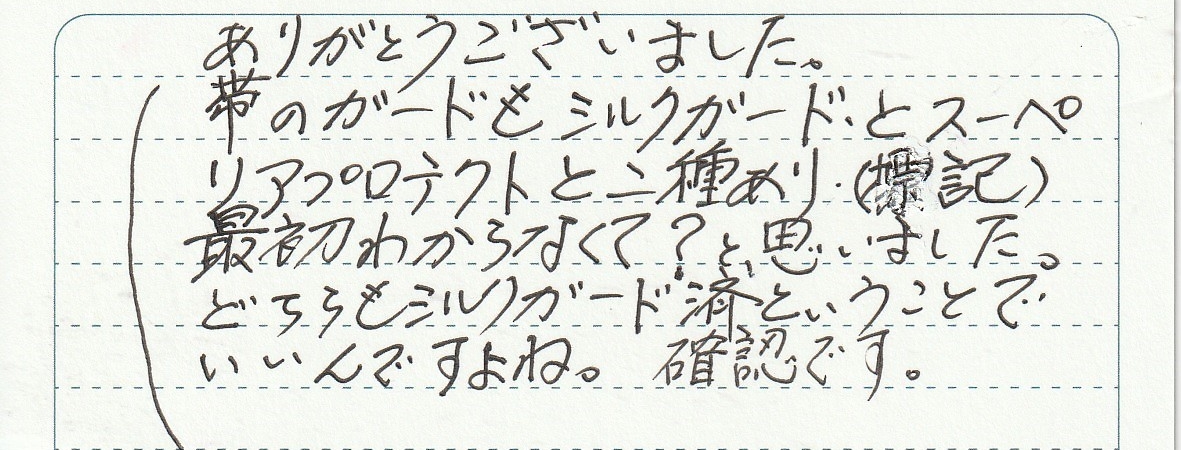 ありがとうございました。
帯のガードもミルクガードとスーペ
リアプロテクトと二種あり(標記)
最初わからなくて?と思いました。
どちらもミルクガード済ということで
いいんですよね。 確認です。